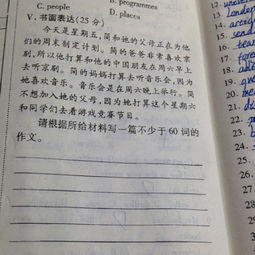 C. people
B. programmes
D. places
V. 书面表达(25分)
今天是星期五,简和她的父母正在为他
们的周末制定计划。简的爸爸非常喜欢京
剧,所以他打算和他的中国朋友在周六早上
去听京剧。简的妈妈打算去听音乐会,因为
她喜欢音乐。音乐会是在周六晚上举行。简
不想加入她的父母,因为她打算这个星期六
和同学们去看游戏竞赛节目。
请根据所给材料写一篇不少于60词的
作文。
12.
13.
14.
15. send
16.
17.
18.
19.
20.
21.
22.
23.
24.
25.
26.